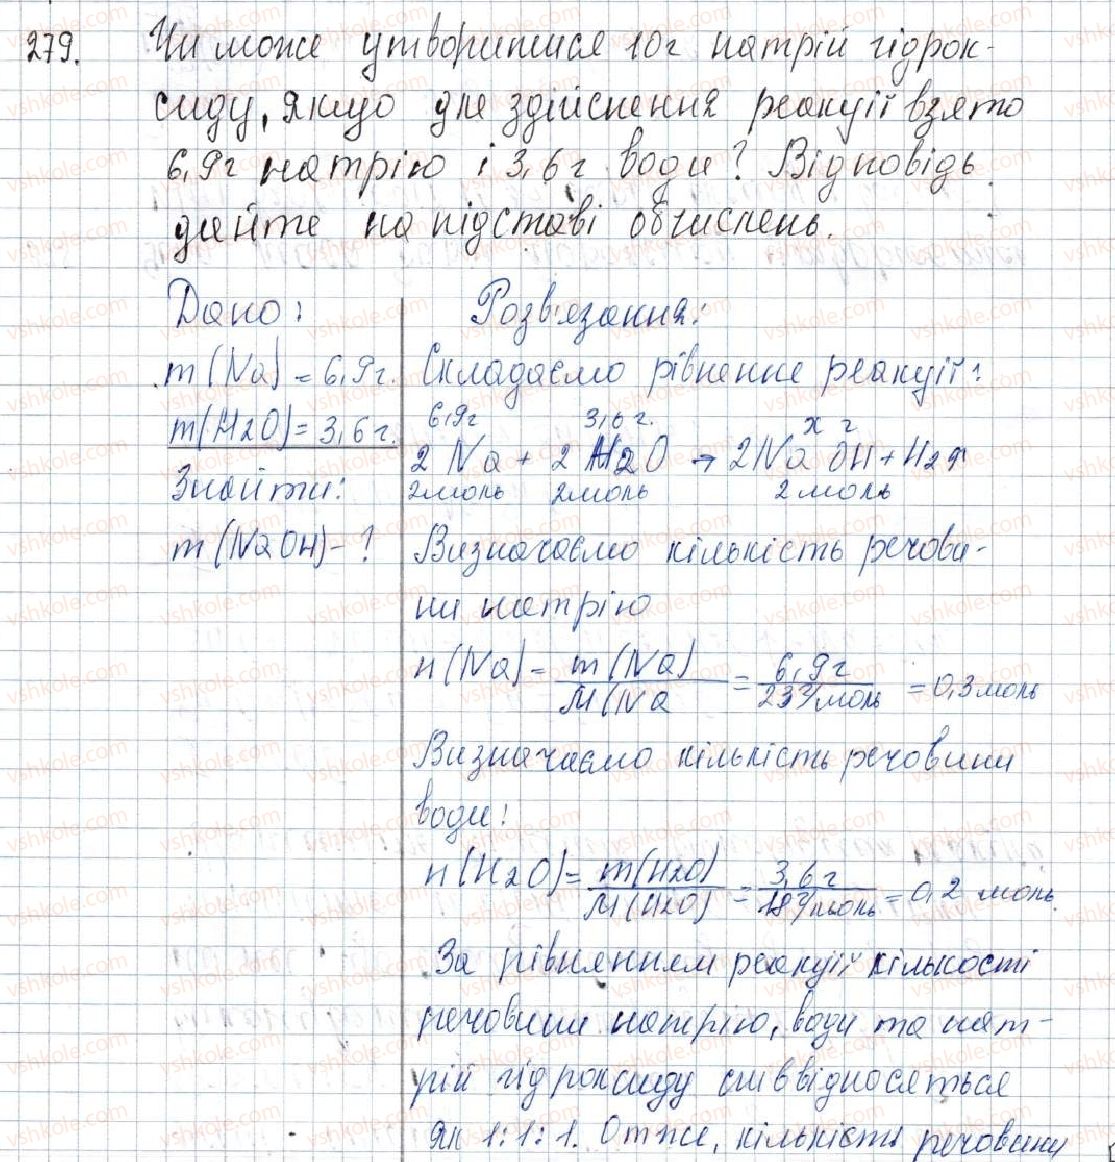 279. Чи може утворитися 10г натрій гідрок-
сиду, якщо для здійснення реакції взято
6,9г натрію і 3,6г води? Відповідь
дайте на підставі обчислень.
Дано:
m(Na) = 6,9г.
m(H2O) = 3,6г.
Знайти:
m(NaOH) - ?
Розв'язання:
Складаємо рівнення реакції:
6,9г 3,6г. x г
2Na + 2H2O → 2NaOH + H2
2моль 2моль 2моль
Визначаємо кількість речови-
ни натрію
n(Na) = m(Na) / M(Na = 6,9г / 23г/моль = 0,3моль
Визначаємо кількість речовини
води:
n(H2O) = m(H2O) / M(H2O) = 3,6г / 18г/моль = 0,2 моль.
За рівнянням реакції кількості
речовини натрію, води та нат-
рій гідроксиду співвідносяться
як 1:1:1. Отже, кількість речовини
vshkole.com